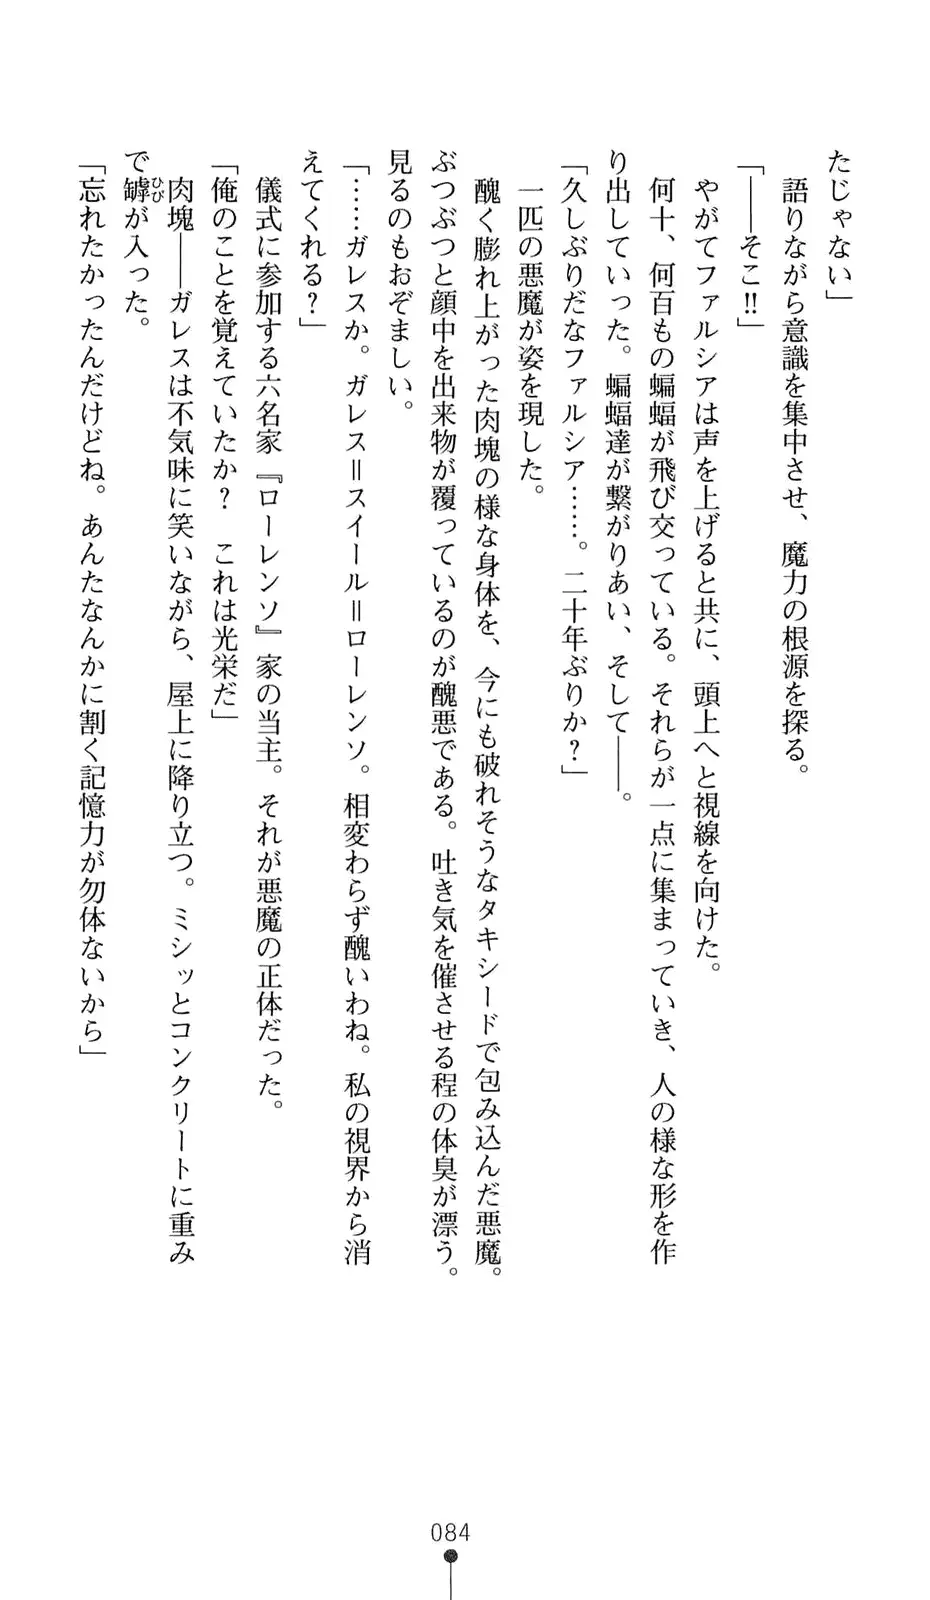 たじゃない」
　語りながら意識を集中させ、魔力の根源を探る。
「――そこ!!」
　やがてファルシアは声を上げると共に、頭上へと視線を向けた。
　何十、何百もの蝙蝠が飛び交っている。それらが一点に集まっていき、人の様な形を作
り出していった。蝙蝠達が繋がりあい、そして――。
「久しぶりだなファルシア……。二十年ぶりか？」
　一匹の悪魔が姿を現した。
　醜く膨れ上がった肉塊の様な身体を、今にも破れそうなタキシードで包み込んだ悪魔。
ぶつぶつと顔中を出来物が覆っているのが醜悪である。吐き気を催させる程の体臭が漂う。
見るのもおぞましい。
「……ガレスか。ガレス＝スイール＝ローレンソ。相変わらず醜いわね。私の視界から消
えてくれる？」
　儀式に参加する六名家『ローレンソ』家の当主。それが悪魔の正体だった。
「俺のことを覚えていたか？　これは光栄だ」
　肉塊――ガレスは不気味に笑いながら、屋上に降り立つ。ミシッとコンクリートに重み
で罅ひびが入った。
「忘れたかったんだけどね。あんたなんかに割く記憶力が勿体ないから」
084